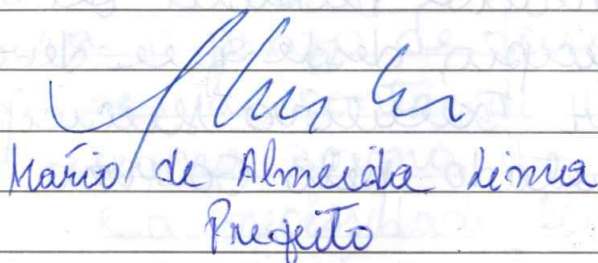 Mário de Almeida Lima
Prefeito